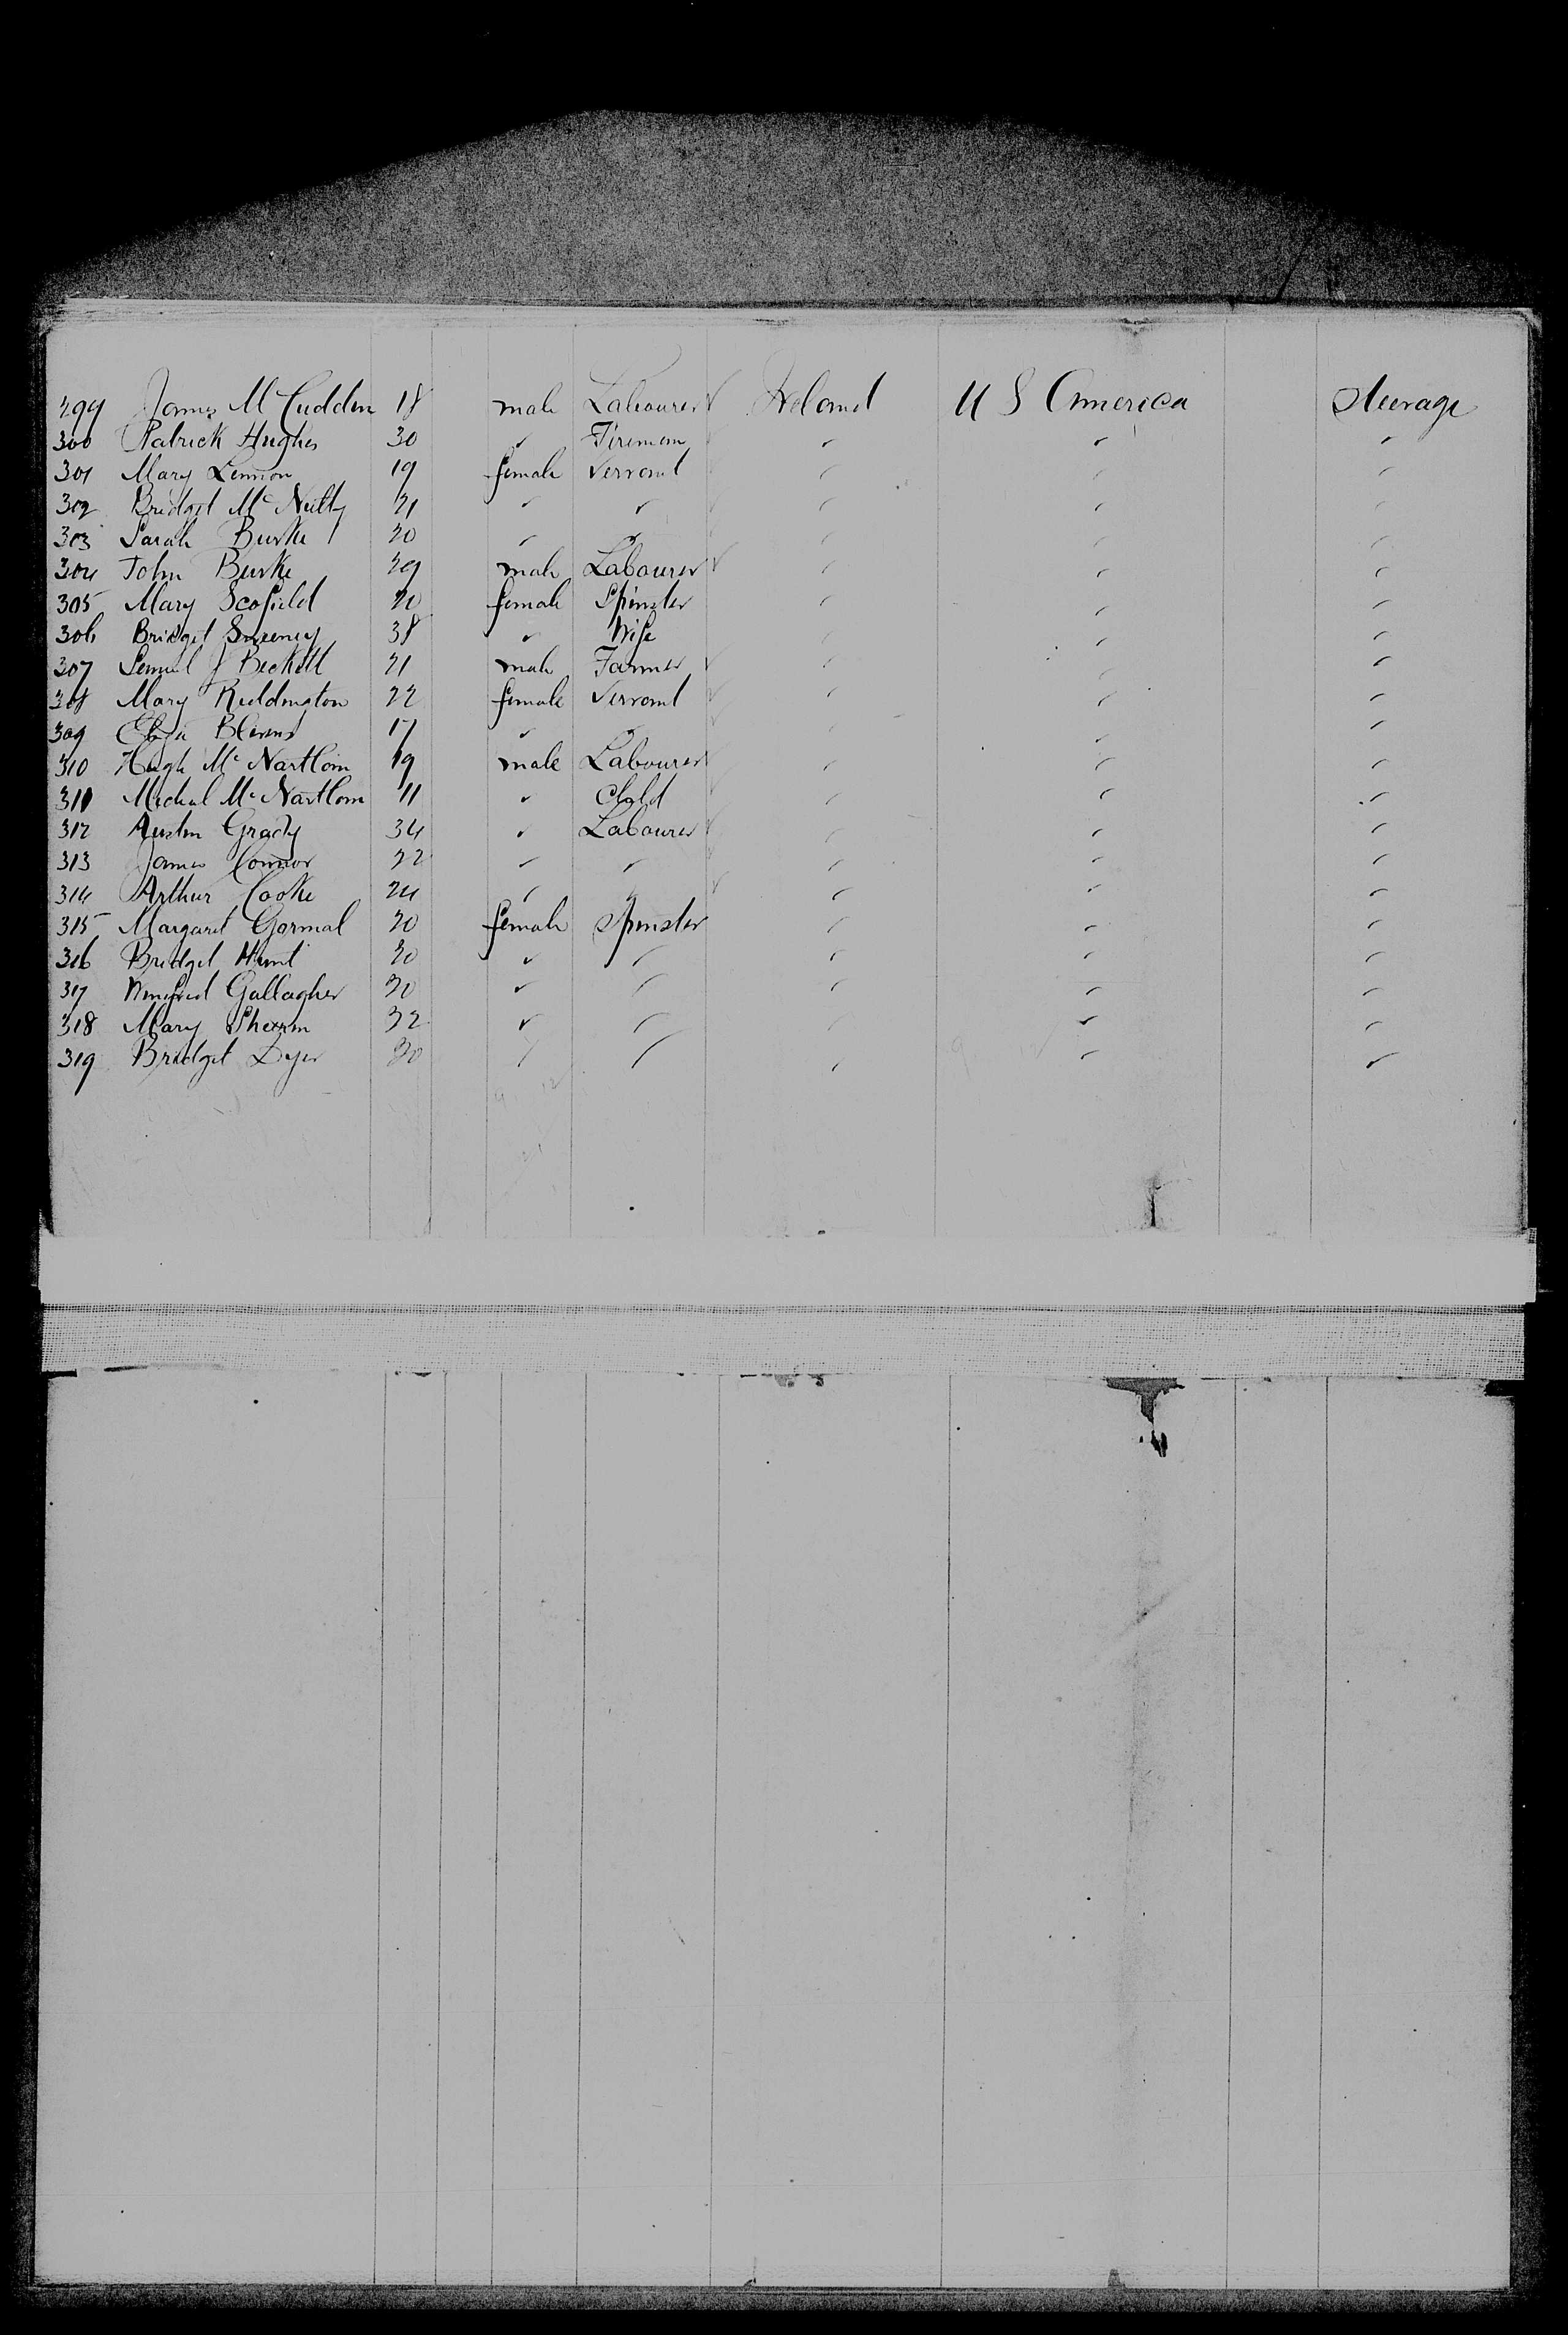 299 James McCudden 18 male Labourer Ireland U S America Steerage
300 Patrick Hughes 30 " Fireman " " "
301 Mary Lennon 19 female Servant " " "
302 Bridget McNulty 21 " " " " "
303 Sarah Burke 20 " " " " "
304 John Burke 29 male Labourer " " "
305 Mary Scofield 20 female Spinster " " "
306 Bridget Sweeney 38 " Wife " " "
307 J Beckett 21 male Farmer " " "
308 Mary Reddington 22 female Servant " " "
309 Eliza 17 " " " " "
310 Hugh Mc 19 male Labourer " " "
311 Micheal Mc 11 " Child " " "
312 Austin Grady 34 " Labourer " " "
313 James Connor 22 " " " " "
314 Arthur Cooke 24 " " " " "
315 Margaret Gormal 20 female Spinster " " "
316 Bridget Hunt 20 " " " " "
317 Winifred Gallagher 20 " " " " "
318 Mary 32 " " " " "
319 Bridget Dyer 30 " " " " "